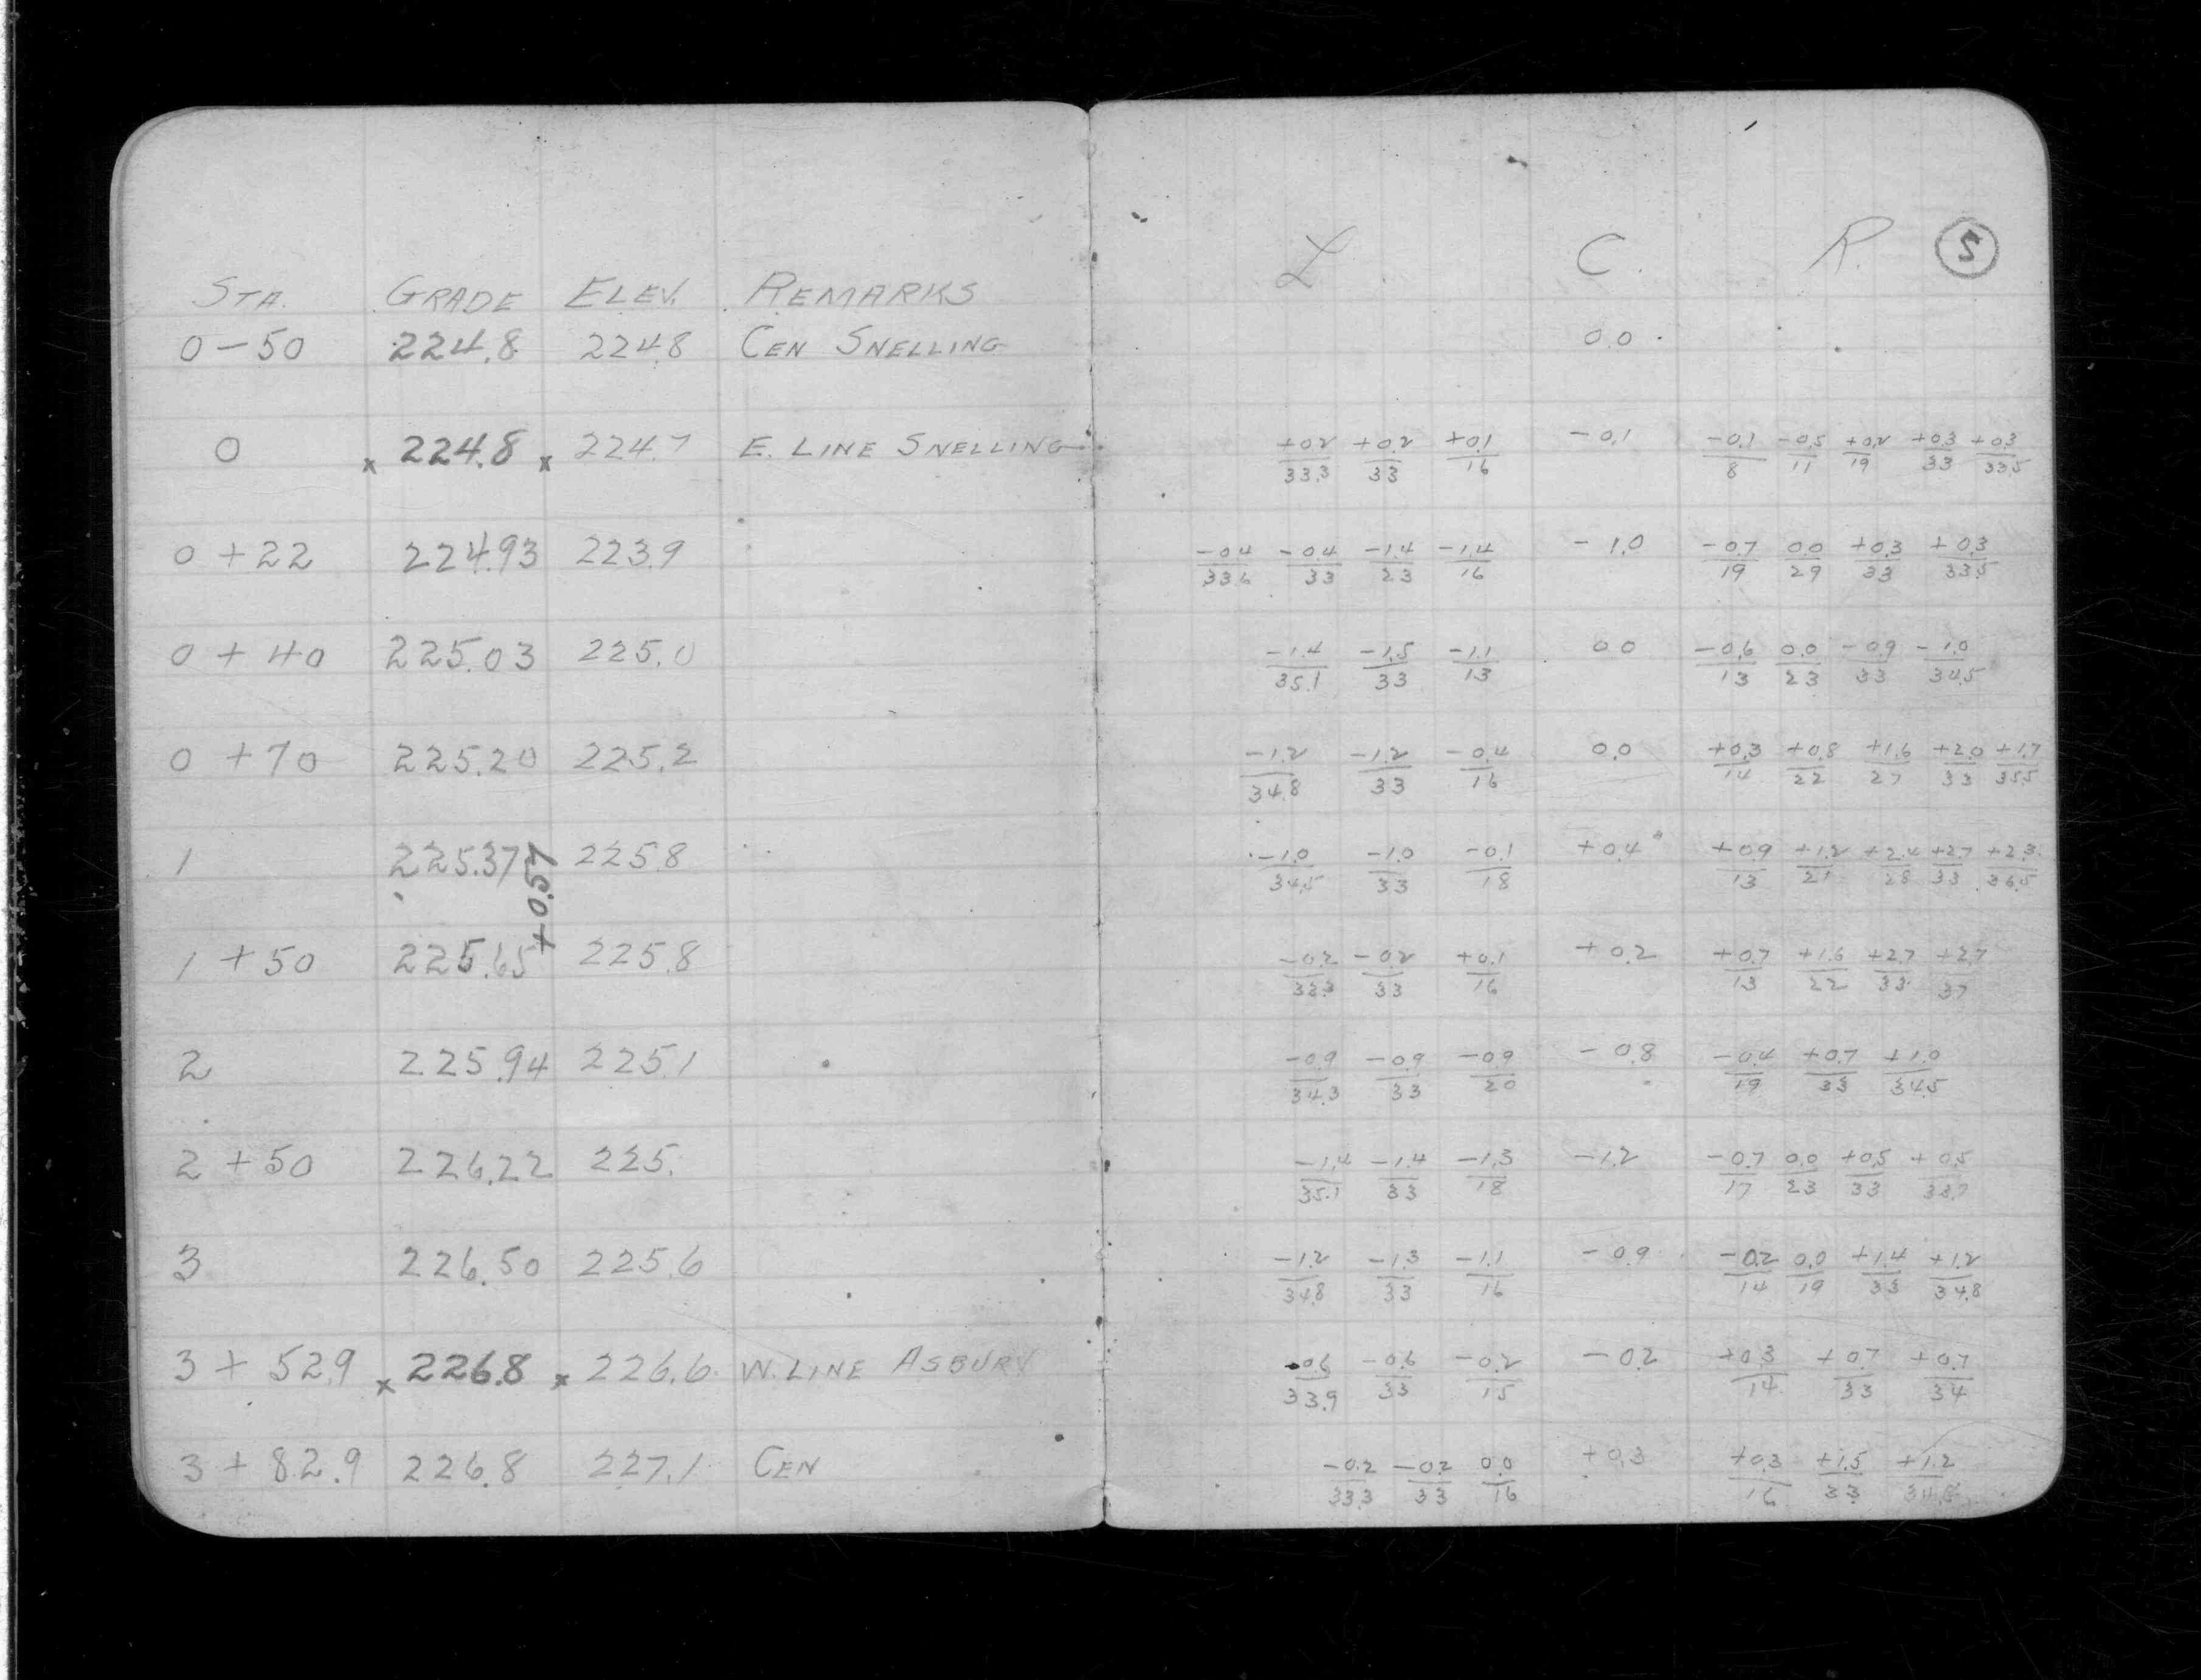 L C. R. (5)
STA. GRADE ELEV. REMARKS
0-50 224.8 224.8 CEN SNELLING 0.0
0 x 224.8 x 224.7 E. LINE SNELLING +0.2/33.3 +0.2/33 +0.1/16 -0.1 -0.1/8 -0.5/11 +0.2/19 +0.3/33 +0.3/33.5
0+22 224.93 223.9 -0.4/33.6 -0.4/33 -1.4/23 -1.4/16 -1.0 -0.7/19 0.0/29 +0.3/33 +0.3/33.5
0+40 225.03 225.0 -1.4/35.1 -1.5/33 -1.1/13 0.0 -0.6/13 0.0/23 -0.9/33 -1.0/34.5
0+70 225.20 225.2 -1.2/34.8 -1.2/33 -0.4/16 0.0 +0.3/14 +0.8/22 +1.6/27 +2.0/33 +1.7/35.5
1 225.37 225.8 -1.0/34.5 -1.0/33 -0.1/18 +0.4 +0.9/13 +1.2/21 +2.4/28 +2.7/33 +2.3/36.5
+0.57
1+50 225.65 225.8 -0.2/33.3 -0.2/33 +0.1/16 +0.2 +0.7/13 +1.6/22 +2.7/33 +2.7/37
2 225.94 225.1 -0.9/34.3 -0.9/33 -0.9/20 -0.8 -0.4/19 +0.7/33 +1.0/34.5
2+50 226.22 225. -1.4/35.1 -1.4/33 -1.3/18 -1.2 -0.7/17 0.0/23 +0.5/33 +0.5/33.7
3 226.50 225.6 -1.2/34.8 -1.3/33 -1.1/16 -0.9 -0.2/14 0.0/19 +1.4/33 +1.2/34.8
3+52.9 x 226.8 x 226.6 W. LINE ASBURY -0.6/33.9 -0.6/33 -0.2/15 -0.2 +0.3/14 +0.7/33 +0.7/34
3+82.9 226.8 227.1 CEN -0.2/33.3 -0.2/33 0.0/16 +0.3 +0.3/16 +1.5/33 +1.2/34.8